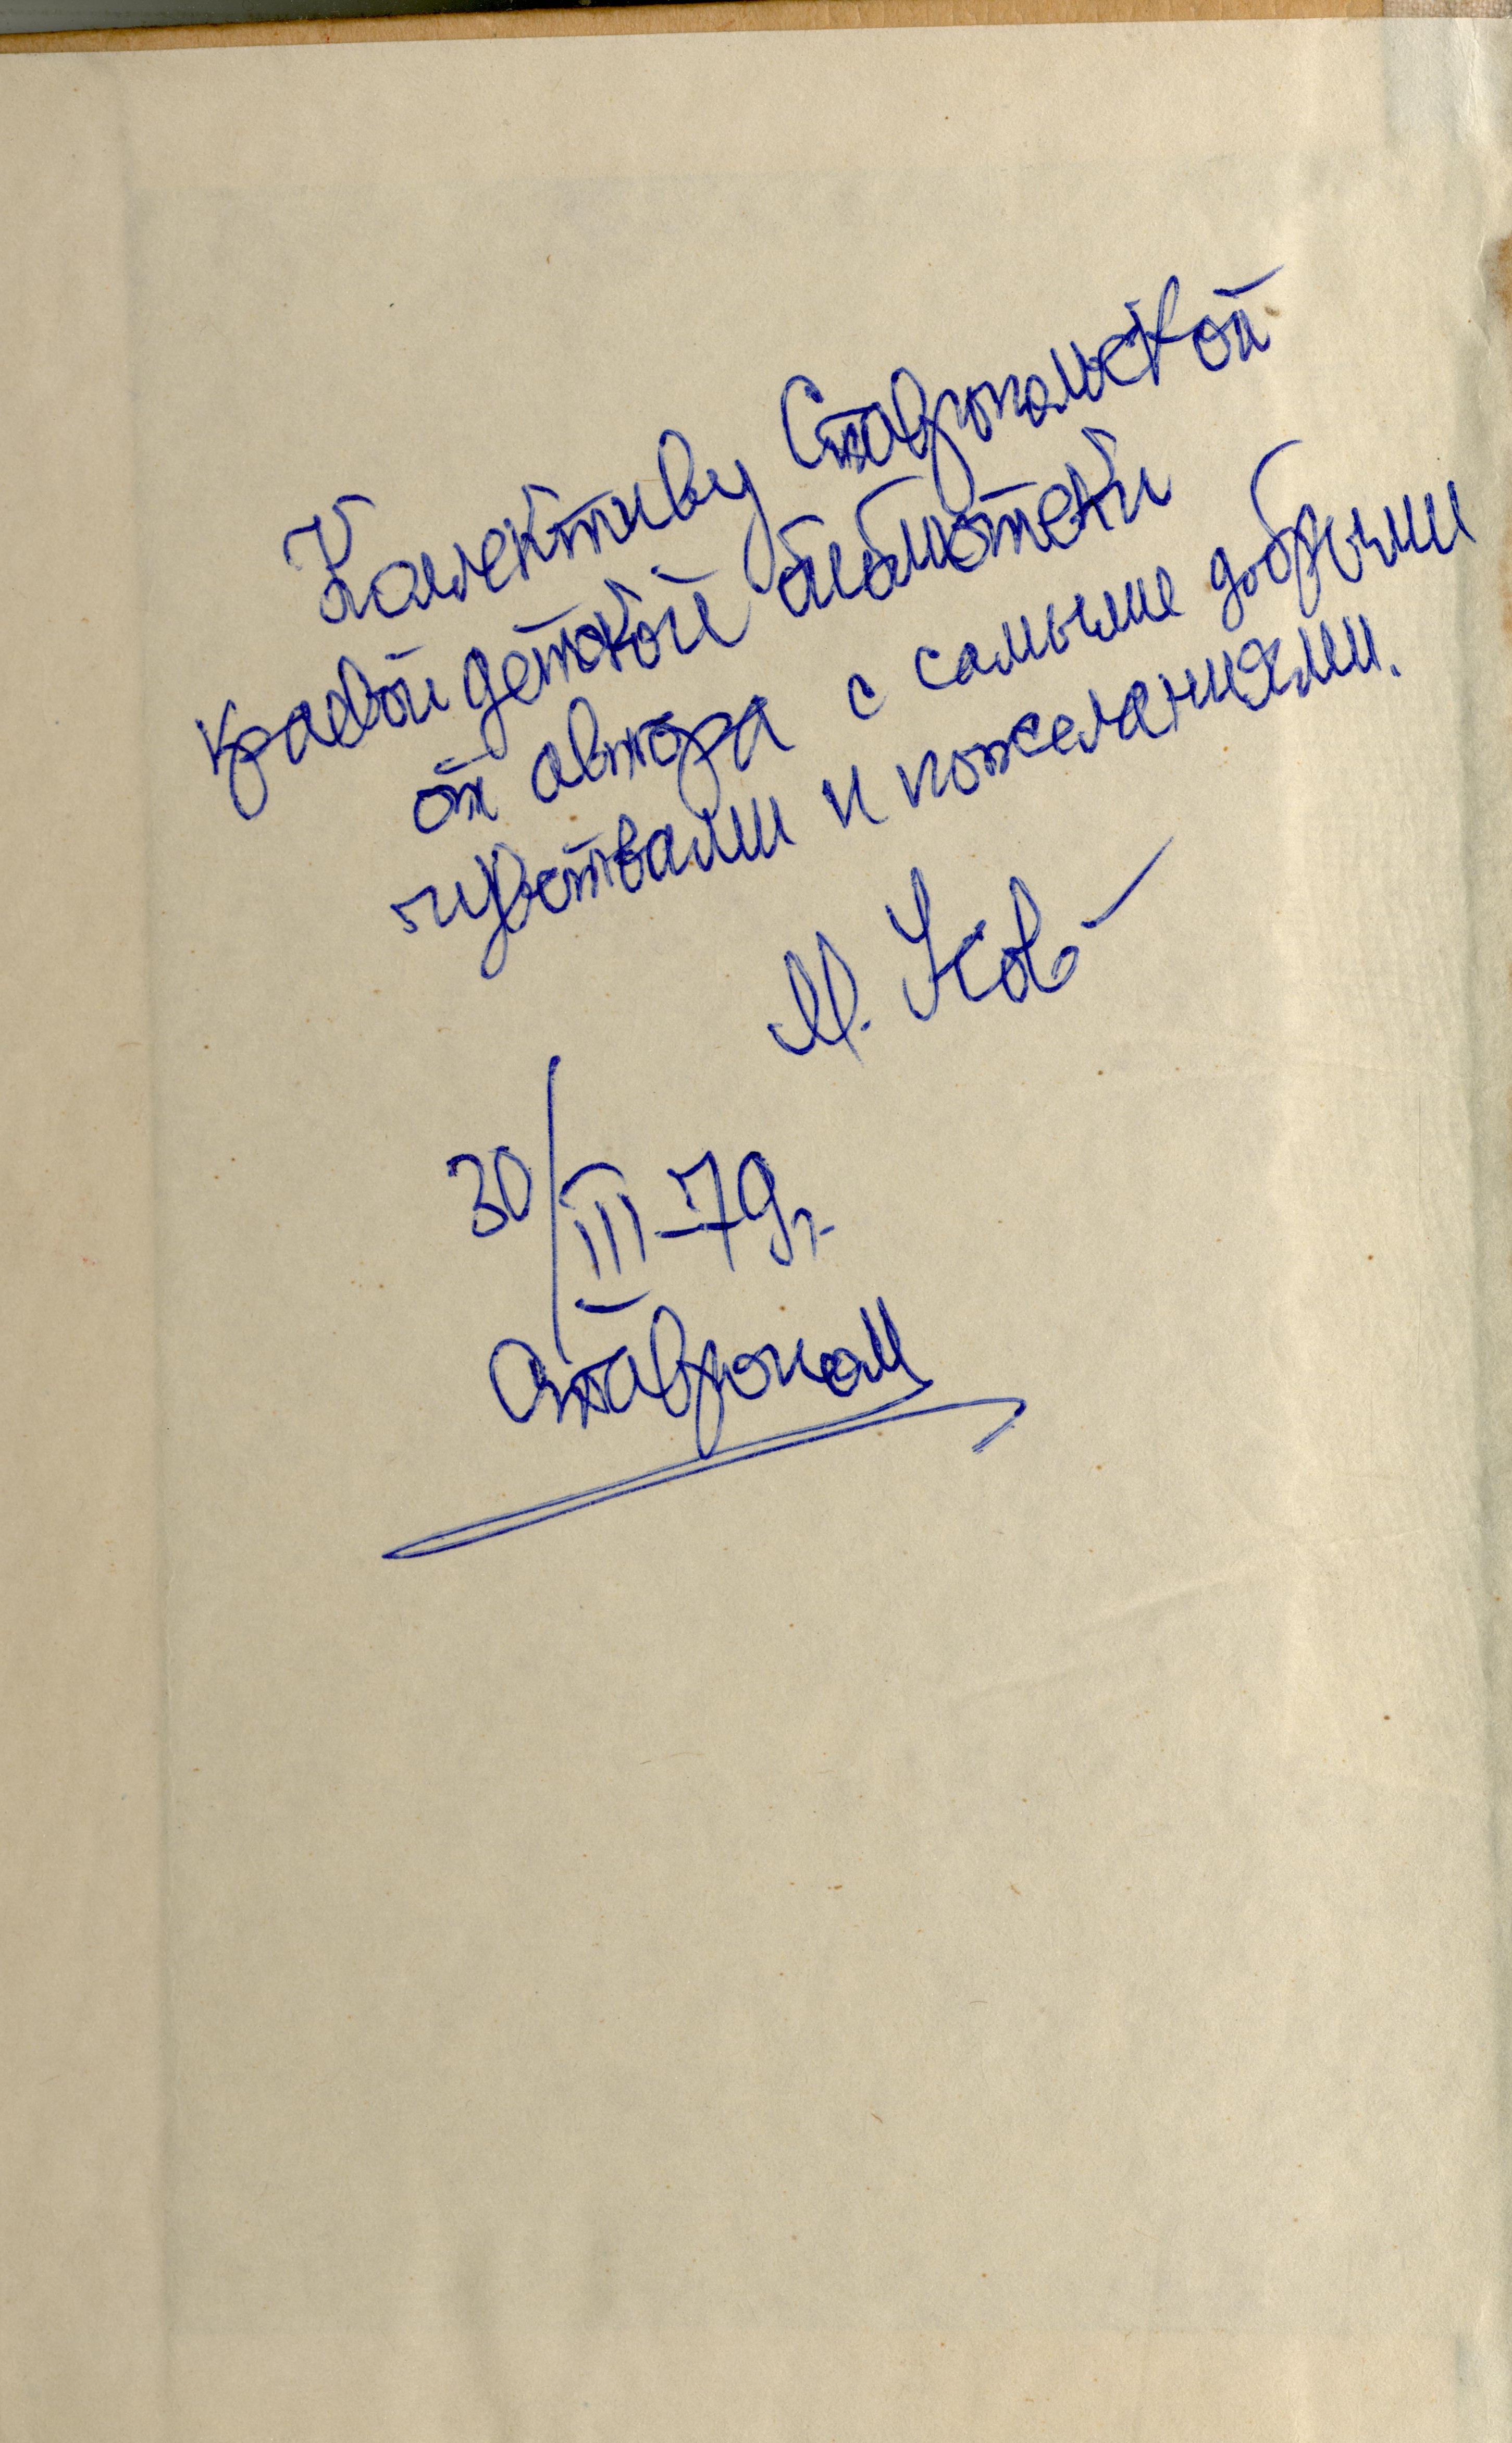 Коллективу Ставропольской
краевой детской библиотеки
от автора с самыми добрыми
чувствами и пожеланиями.
М. Усов
30/III-79г.
Ставрополь